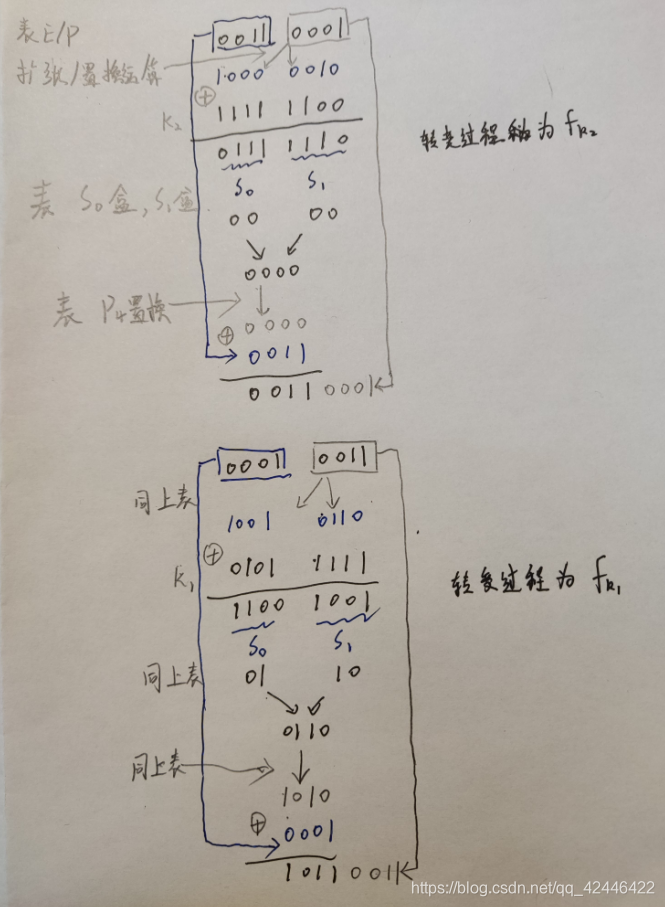 表E/P 0011 0001
扩张/置换运算 1000 0010
⊕
K₂ 1111 1100
转变过程称为 fK₂
0111 1110
S₀ S₁
表 S₀盒,S₁盒
00 00
0000
表 P₄置换
0000
⊕
0011
0011 0001
0001 0011
同上表
1001 0110
⊕
K₁ 0101 1111
转变过程为 fK₁
1100 1001
S₀ S₁
同上表 01 10
0110
同上表
1010
⊕
0001
1011 0011
https://blog.csdn.net/qq_42446422